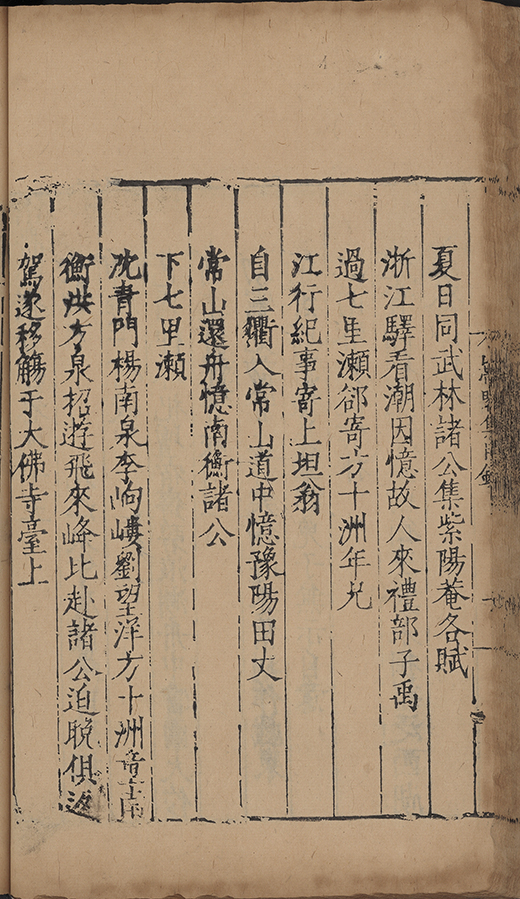 夏日同武林諸公集紫陽菴各賦
浙江驛看潮因憶故人來禮部子禹
過七里瀬郤寄方十洲年兄
江行紀事寄上坦翁
自三衢入常山道中憶豫陽田丈
常山還舟憶南衡諸公
下七里瀬
沈青門楊南泉李岣嶁劉望洋方十洲童南
衡洪方泉招遊飛來峰比赴諸公迫晚俱返
駕遂移觴于大佛寺臺上